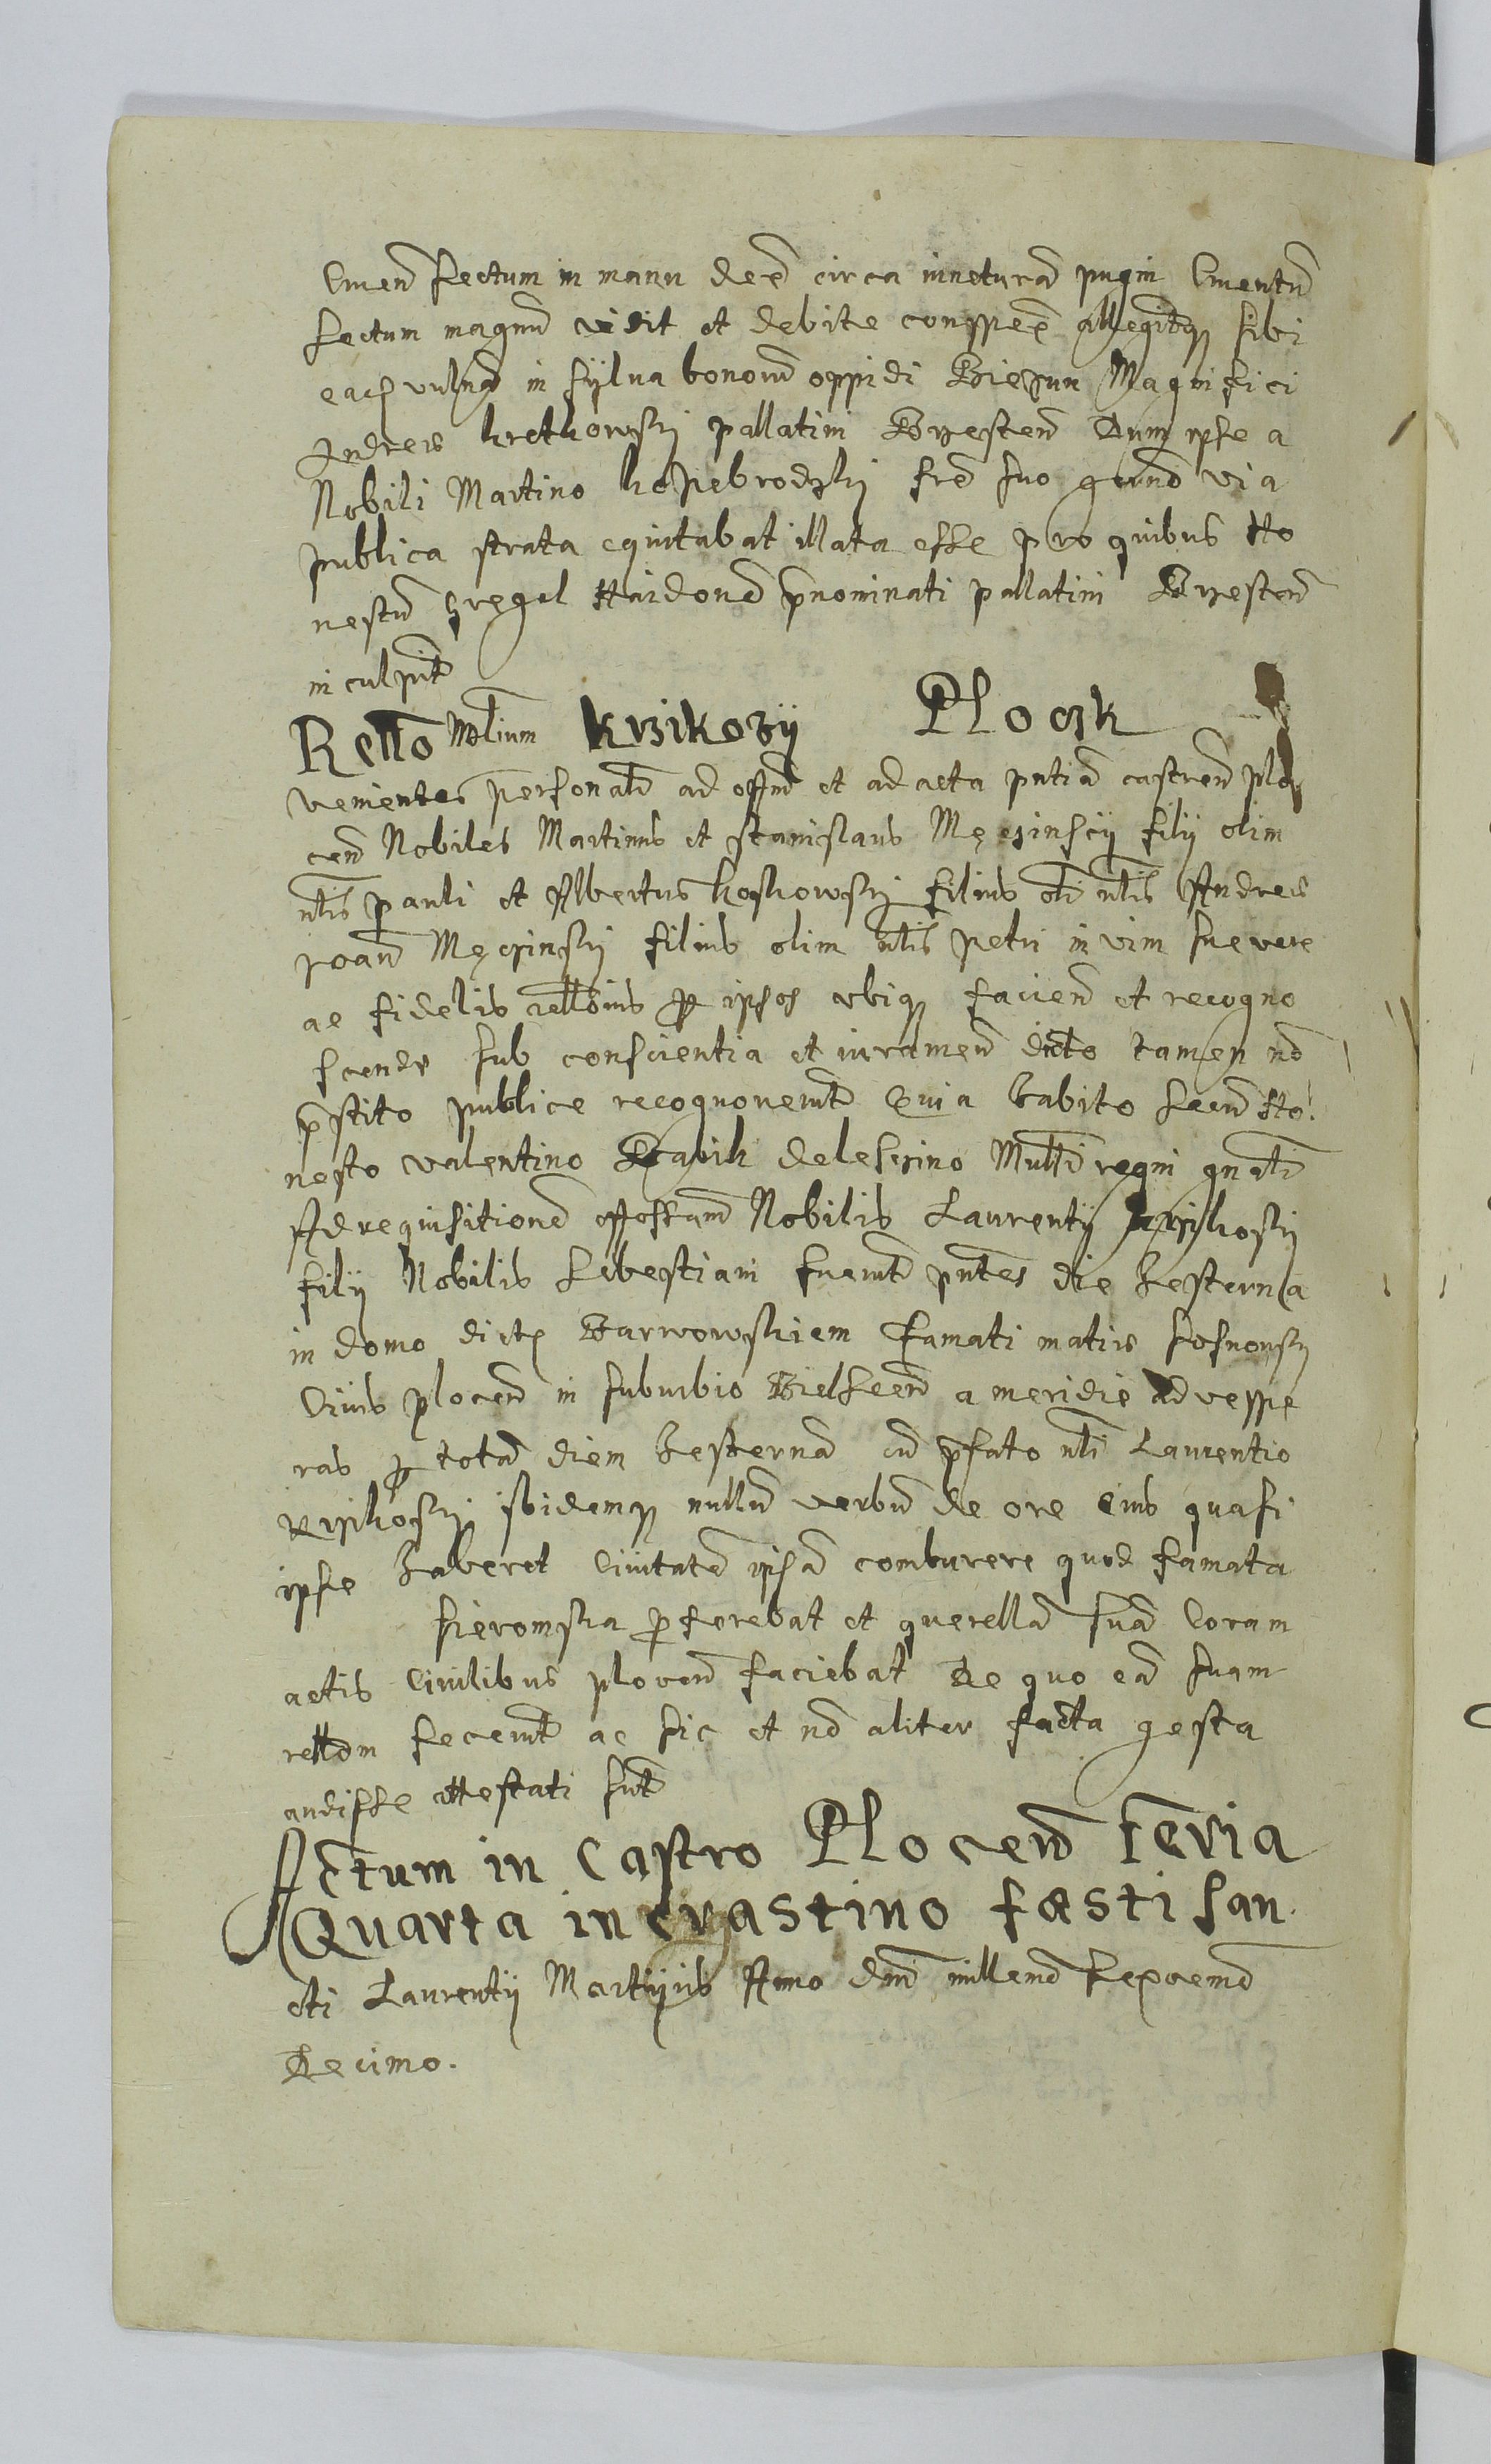 Cruen sectum in manu dex circa iuncturam pugin Cruentum
sectum magnum vidit et debite conspex allegitq sibi
eadem vulna in sylva bonorum oppidi Biezun Magnifici
Andreis kretkowski pallatini Brzesten dum ipse a
Nobili Martino koziebrodzki fre suo germo via
publica strata equitabat illata esse pro quibus Ho
nestum Gregel Haidone pnominati pallatini Brzesten
inculpat
Retto Nobilium krzikozÿ Ploczk
venientes personalr ad offm et ad acta pntia castren plo
cen Nobiles Martinus et Stanislaus Męczinscÿ filÿ olim
nlis pauli et Albertus koskowski filius oli nlis Andreis
Joan Męczinski filius olim nlis petri in vim sue vere
ac fidelis rellonis p ipsos ubiq facien et recogno
scende sub conscientia et iuramen dicto tamen no
pstito publice recognoverunt Quia habito secum Ho
nesto valentino Babik de lesczino Mltri regni gnali
Ad requisitionem affectam Nobilis Laurentÿ krzikoski
filÿ Nobilis Sebestiani fuerunt pntes die hesterna
in domo dicta Barwowskiem famati matis sosnowski
Civis plocen in suburbio Bielscen a meridie ad vespe
ras p totam diem hesternam cu pfato nli Laurentio
krzikoski ibidemq nullum verbum de ore eius quasi
ipse haberet Civitatem ipsam comburere quod famata
sieromska pferebat et querellam suam Coram
actis Civilibus plocen faciebat de quo eam suam
rettom fecerunt ac sic et no aliter facta gesta
audisse attestati sunt
Actum in Castro Plocen feria
Quarta in crastino fæsti san
cti Laurentÿ Martÿris Anno dni millemo sexcenmo
decimo.